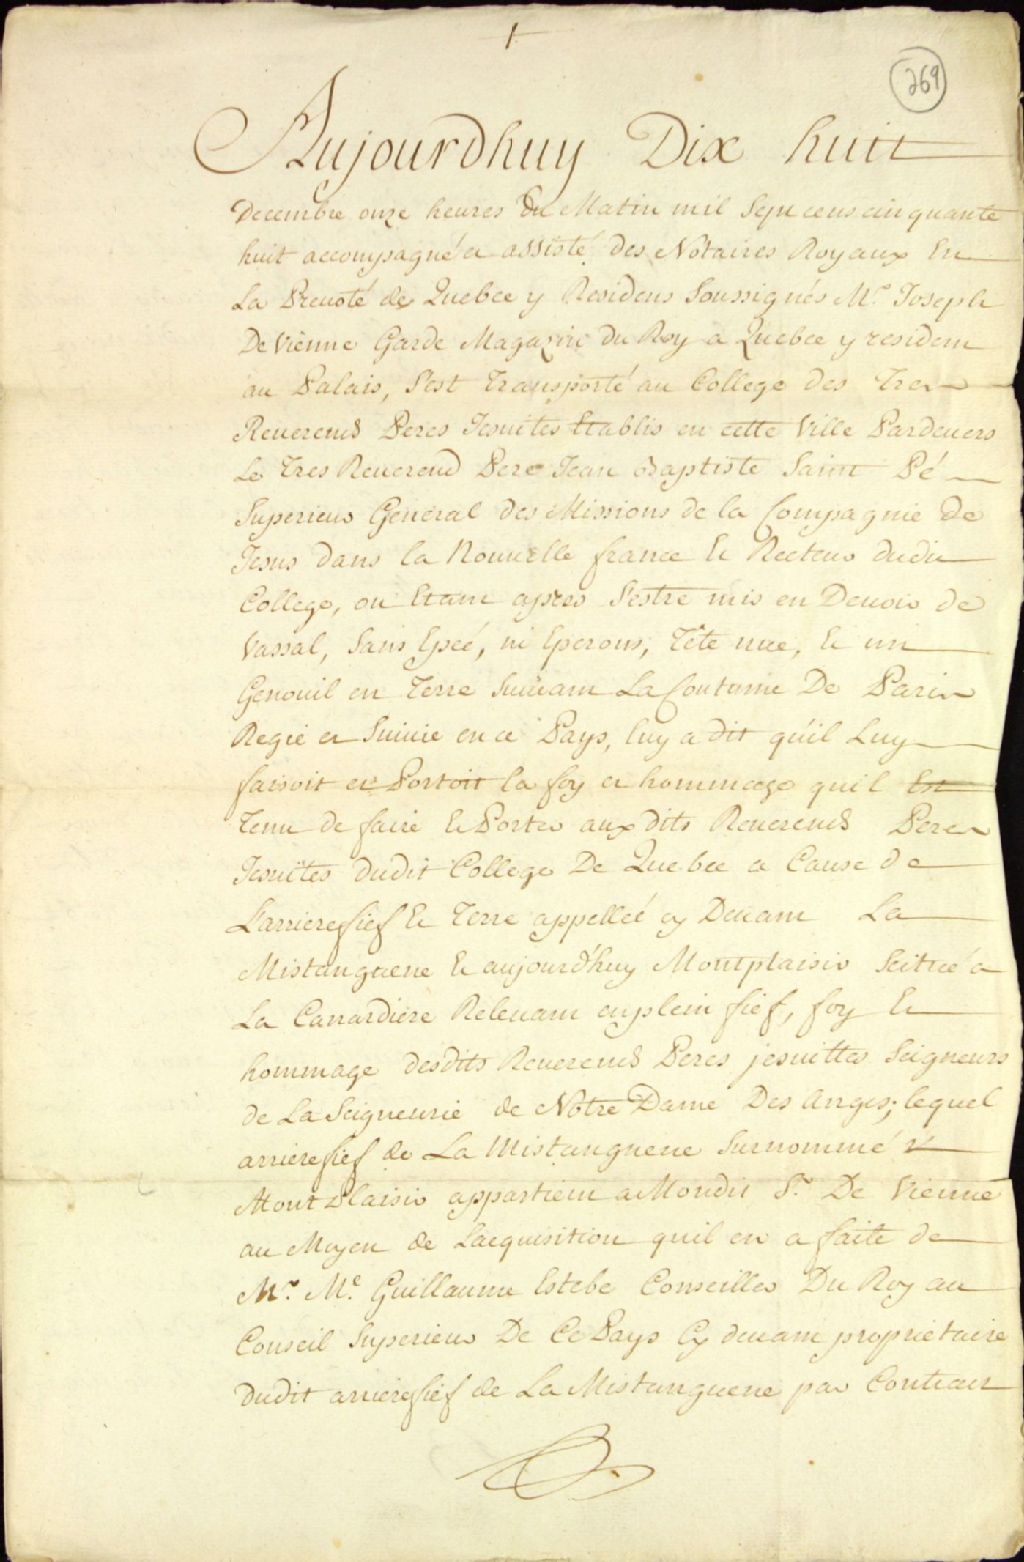 1
269
Aujourdhuy Dix huit
Decembre onze heures Du Matin mil Sept cens cinquante
huit accompagné et assisté des Notaires Royaux En
La Prevoté de Quebec y Residens Soussignés Mr. Joseph
De Vienne Garde Magazin du Roy a Quebec y resident
au Palais, S'est Transporté au College des Tres
Reverends Peres Jesuites Etablis en cette Ville Pardevers
Le Tres Reverend Pere Jean Baptiste Saint Pé
Superieur General des Missions de la Compagnie De
Jesus dans la Nouvelle france Et Recteur dudit
College, ou Etant apres S'estre mis en Devoir de
Vassal, Sans Epeé, ni Eperons, Tête nue, Et un
Genouil en Terre Suivant La Coutume De Paris
Regie et Suivie en ce Pays, luy a dit qu'il Luy
faisoit et Portoit la foy et hommage quil Est
Tenu de faire Et Porter aux dits Reverends Peres
Jesuites dudit College De Quebec a Cause de
L'arrierefief Et Terre appelleé cy Devant La
Mistanguene Et aujourd'huy Montplaisir Scitueé a
La Canardiere Relevant en plein fief, foy Et
hommage desdits Reverends Peres jesuittes Seigneurs
de La Seigneurie de Notre Dame Des Anges; lequel
arrierefief de La Mistanguene Surnommé
Mont Plaisir appartient a Mondit Sr. De Vienne
au Moyen de Lacquisition quil en a faite de
Mr. Me. Guillaume Estebe Conseiller Du Roy au
Conseil Superieur De Ce Pays Cy devant proprietaire
dudit arrierefief de La Mistanguene par Contract